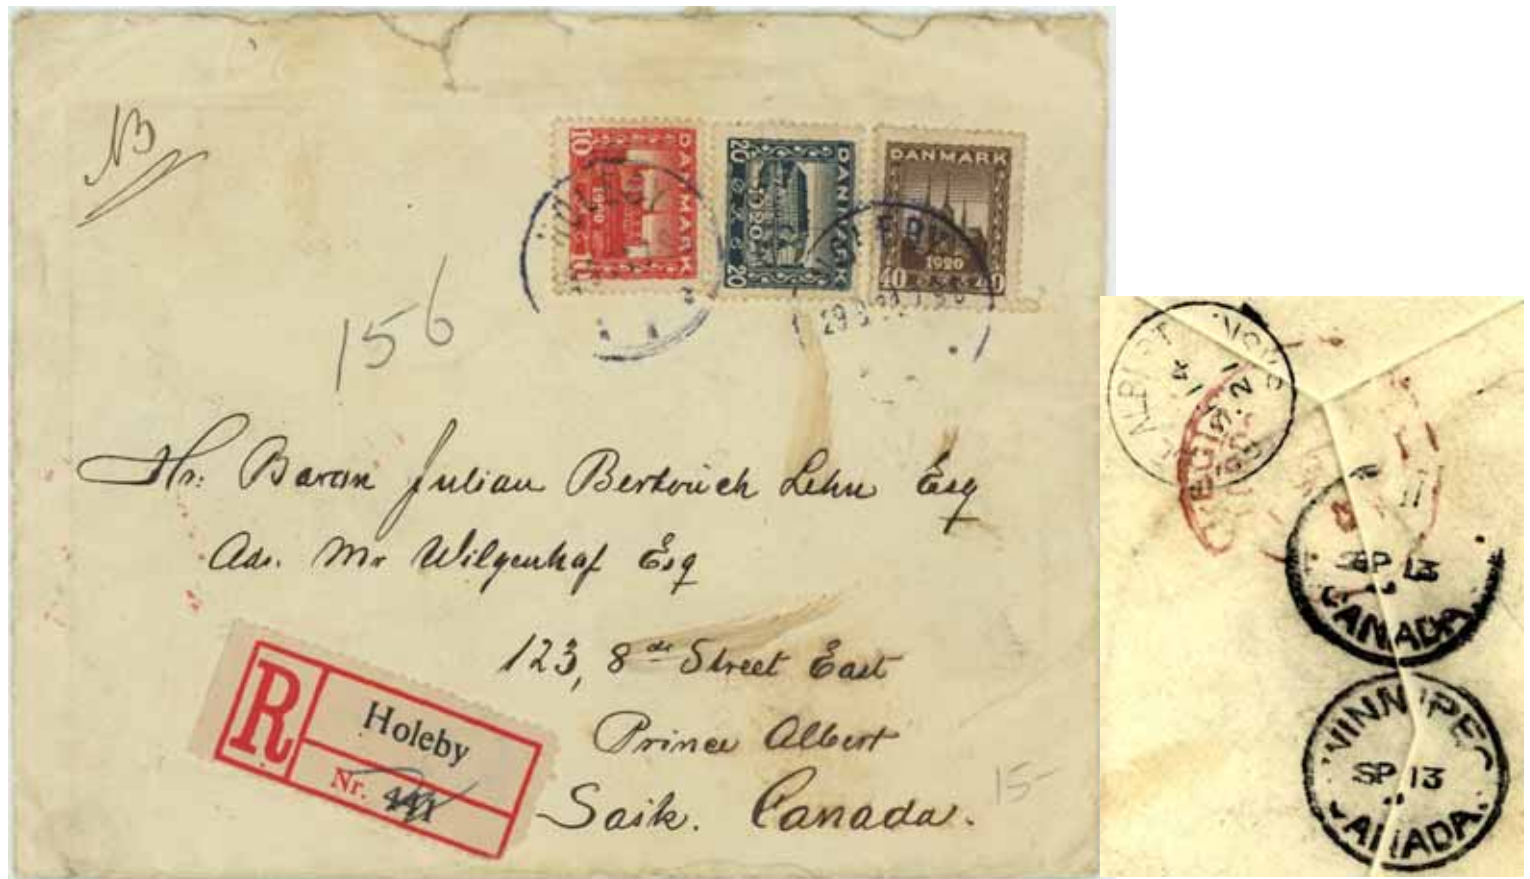 NB
DANMARK
10
10
1920
10
DANMARK
20
1920
20
DANMARK
1920
40 40
HOLEBY
156
Hr. Baron Julian Bertouch Lehn Esq
Adr. Mr Wilgenhof Esq
123, 8de Street East
Prince Albert
Sask. Canada.
15-
R
Holeby
Nr.
ALBERT
REGI
SP 13
CANADA.
WINNIPEG
SP 13
CANADA.